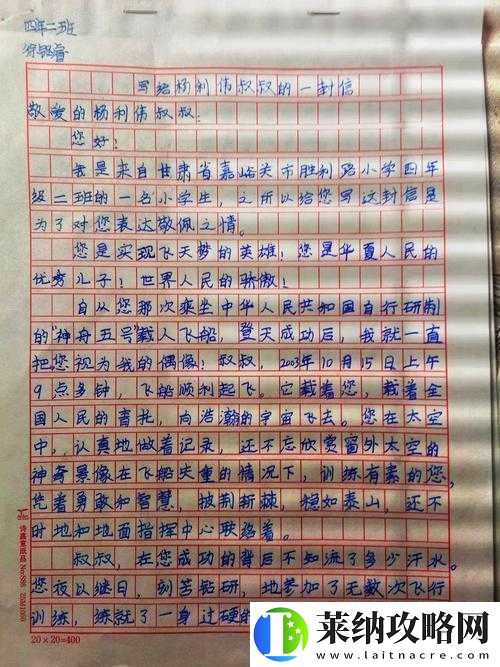 四年二班
写给杨利伟叔叔的一封信
敬爱的杨利伟叔叔:
您好!
我是来自甘肃省嘉峪关市胜利路小学四年
级二班的一名小学生,之所以给您写这封信是
为了对您表达敬佩之情。
您是实现飞天梦的英雄!您是华夏人民的
优秀儿子!世界人民的骄傲!
自从您那次乘坐中华人民共和国自行研制
的“神舟五号”载人飞船,登天成功后,我就一直
把您视为我的偶像!叔叔,2003年10月15日上午
9点多钟,飞船顺利起飞。它载着您,载着全
国人民的寄托,向浩瀚的宇宙飞去。您在太空
中,认真地做着记录,还不忘欣赏窗外太空的
神奇景像在飞船失重的情况下,训练有素的您,
凭着勇敢和智慧,披荆斩棘,稳如泰山,还不
时地和地面指挥中心联络着。
叔叔,在您成功的背后不知流了多少汗水。
您夜以继日,刻苦钻研,地参加了无数次飞行
训练,练就了一身过硬的
20×20=400
莱纳攻略网
www.laitnacre.com